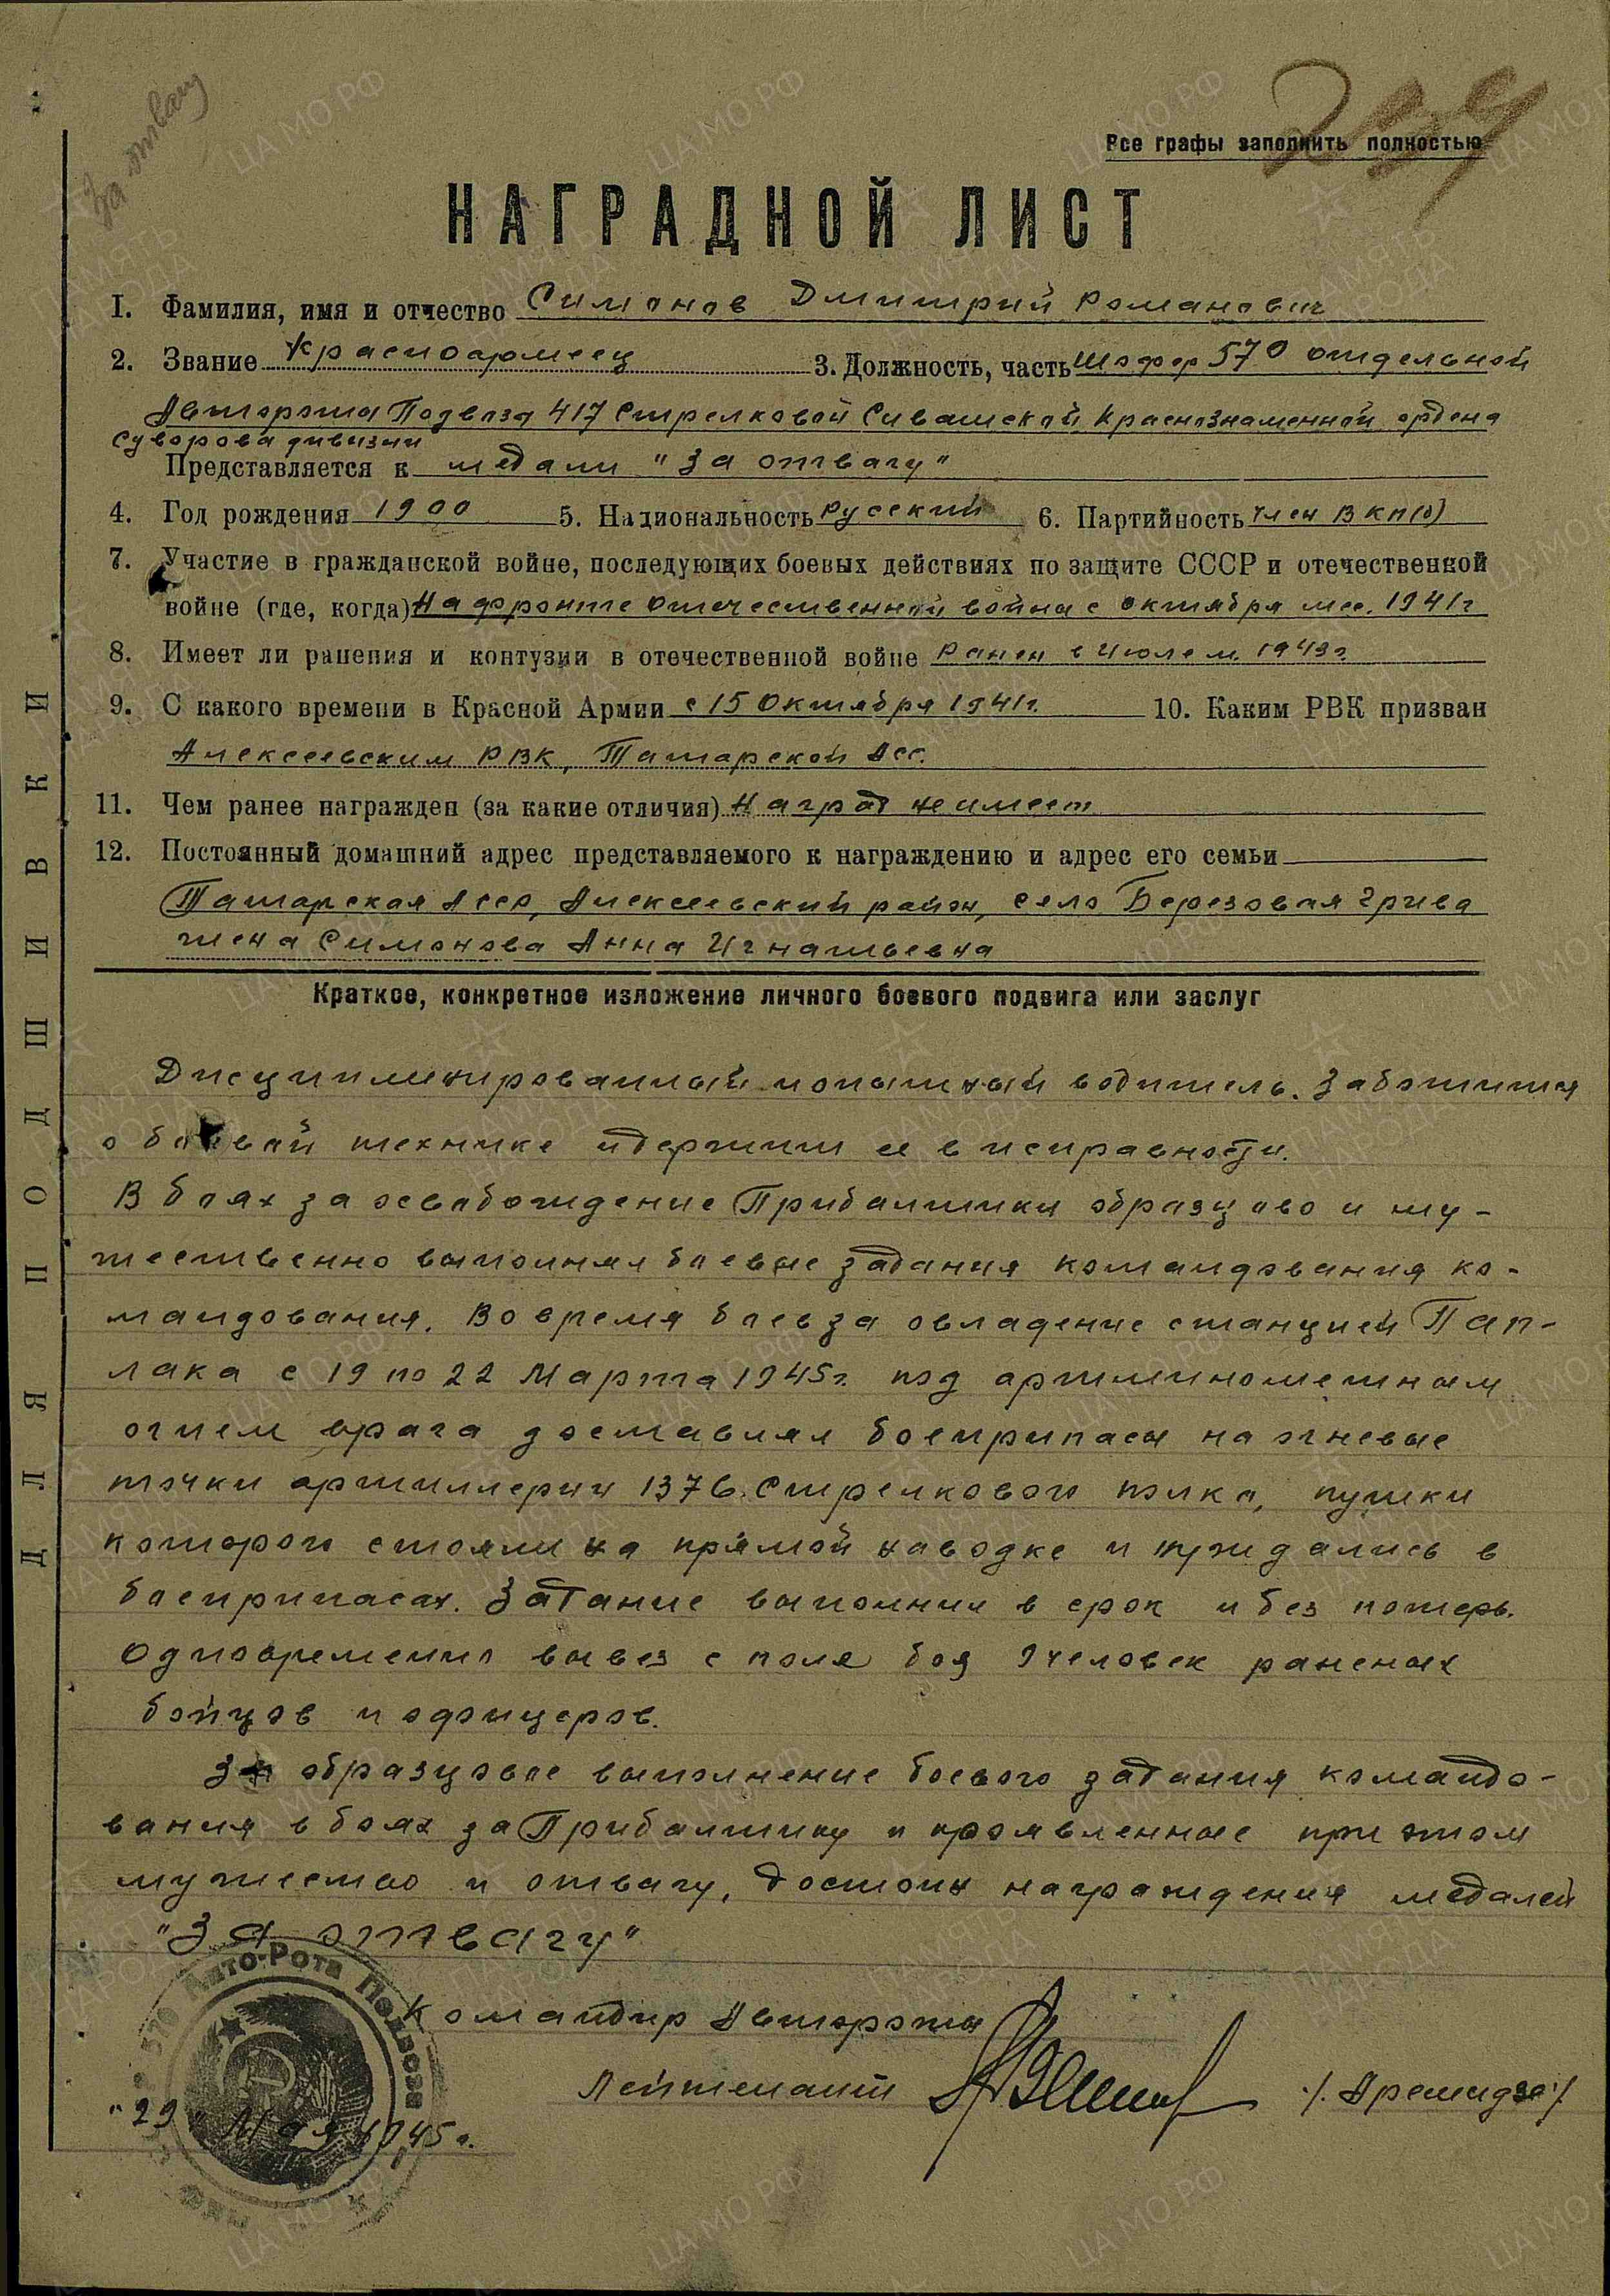 За отвагу
Все графы заполнить полностью
НАГРАДНОЙ ЛИСТ
1. Фамилия, имя и отчество Симонов Дмитрий Романович
2. Звание Красноармеец 3. Должность, часть Шофер 570 отдельной
Автороты Подвоза 417 Стрелковой Сивашской, Краснознаменной, ордена
Суворова дивизии
Представляется к медали "За отвагу"
4. Год рождения 1900 5. Национальность Русский 6. Партийность член ВКП(б)
7. Участие в гражданской войне, последующих боевых действиях по защите СССР и отечественной
войне (где, когда) На фронте отечественной война с октября мес. 1941г
8. Имеет ли ранения и контузии в отечественной войне Ранен в Июле м. 1943г.
9. С какого времени в Красной Армии с 15 Октября 1941г. 10. Каким РВК призван
Алексеевским РВК, Татарской Асс.
11. Чем ранее награжден (за какие отличия) Наград не имеет
12. Постоянный домашний адрес представляемого к награждению и адрес его семьи
Татарская Асср, Алексеевский район, село Березовая Грива
жена Симонова Анна Игнатьевна
Краткое, конкретное изложение личного боевого подвига или заслуг
Дисциплинированный и опытный водитель. Заботится
о боевой технике и держит ее в исправности.
В боях за освобождение Прибалтики образцово и му-
жественно выполнял боевые задания командования ко-
мандования. Во время боев за овладение станцией Пап-
лака с 19 по 22 Марта 1945г. под артминометным
огнем врага доставлял боеприпасы на огневые
точки артиллерии 1376 Стрелкового полка, пушки
которого стояли на прямой наводке и нуждались в
боеприпасах. Задание выполнил в срок и без потерь.
Одновременно вывез с поля боя 9 человек раненых
бойцов и офицеров.
За образцовое выполнение боевого задания командо-
вания в боях за Прибалтику и проявленные при этом
мужество и отвагу, достоин награждения медалей
"За отвагу"
Командир Автороты
Лейтенант /. Аремидзе /.
"29" Мая 1945г.
570 Авто-Рота Подвоза
ДЛЯ ПОДШИВКИ
ЦА МО РФ
ПАМЯТЬ НАРОДА